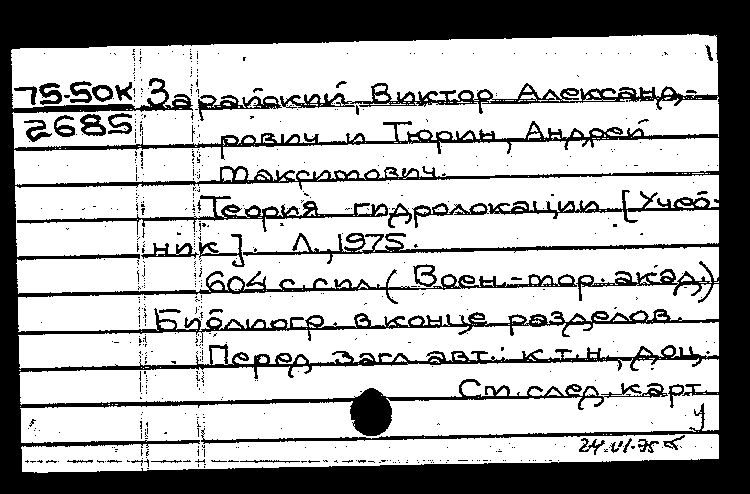 75-50к Зарайский, Виктор Александ-
2685 рович и Тюрин, Андрей
Максимович.
Теория гидролокации [Учеб-
ник]. Л., 1975.
604 с. с ил. (Воен.-мор. акад.)
Библиогр. в конце разделов.
Перед загл. авт.: к.т.н., доц.
См. след. карт.
у
24.VI.75